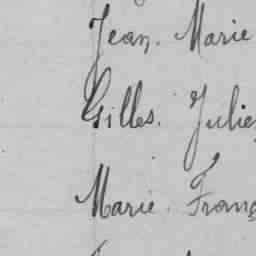 Jean. Marie
Gilles. Julie
Marie. Franç